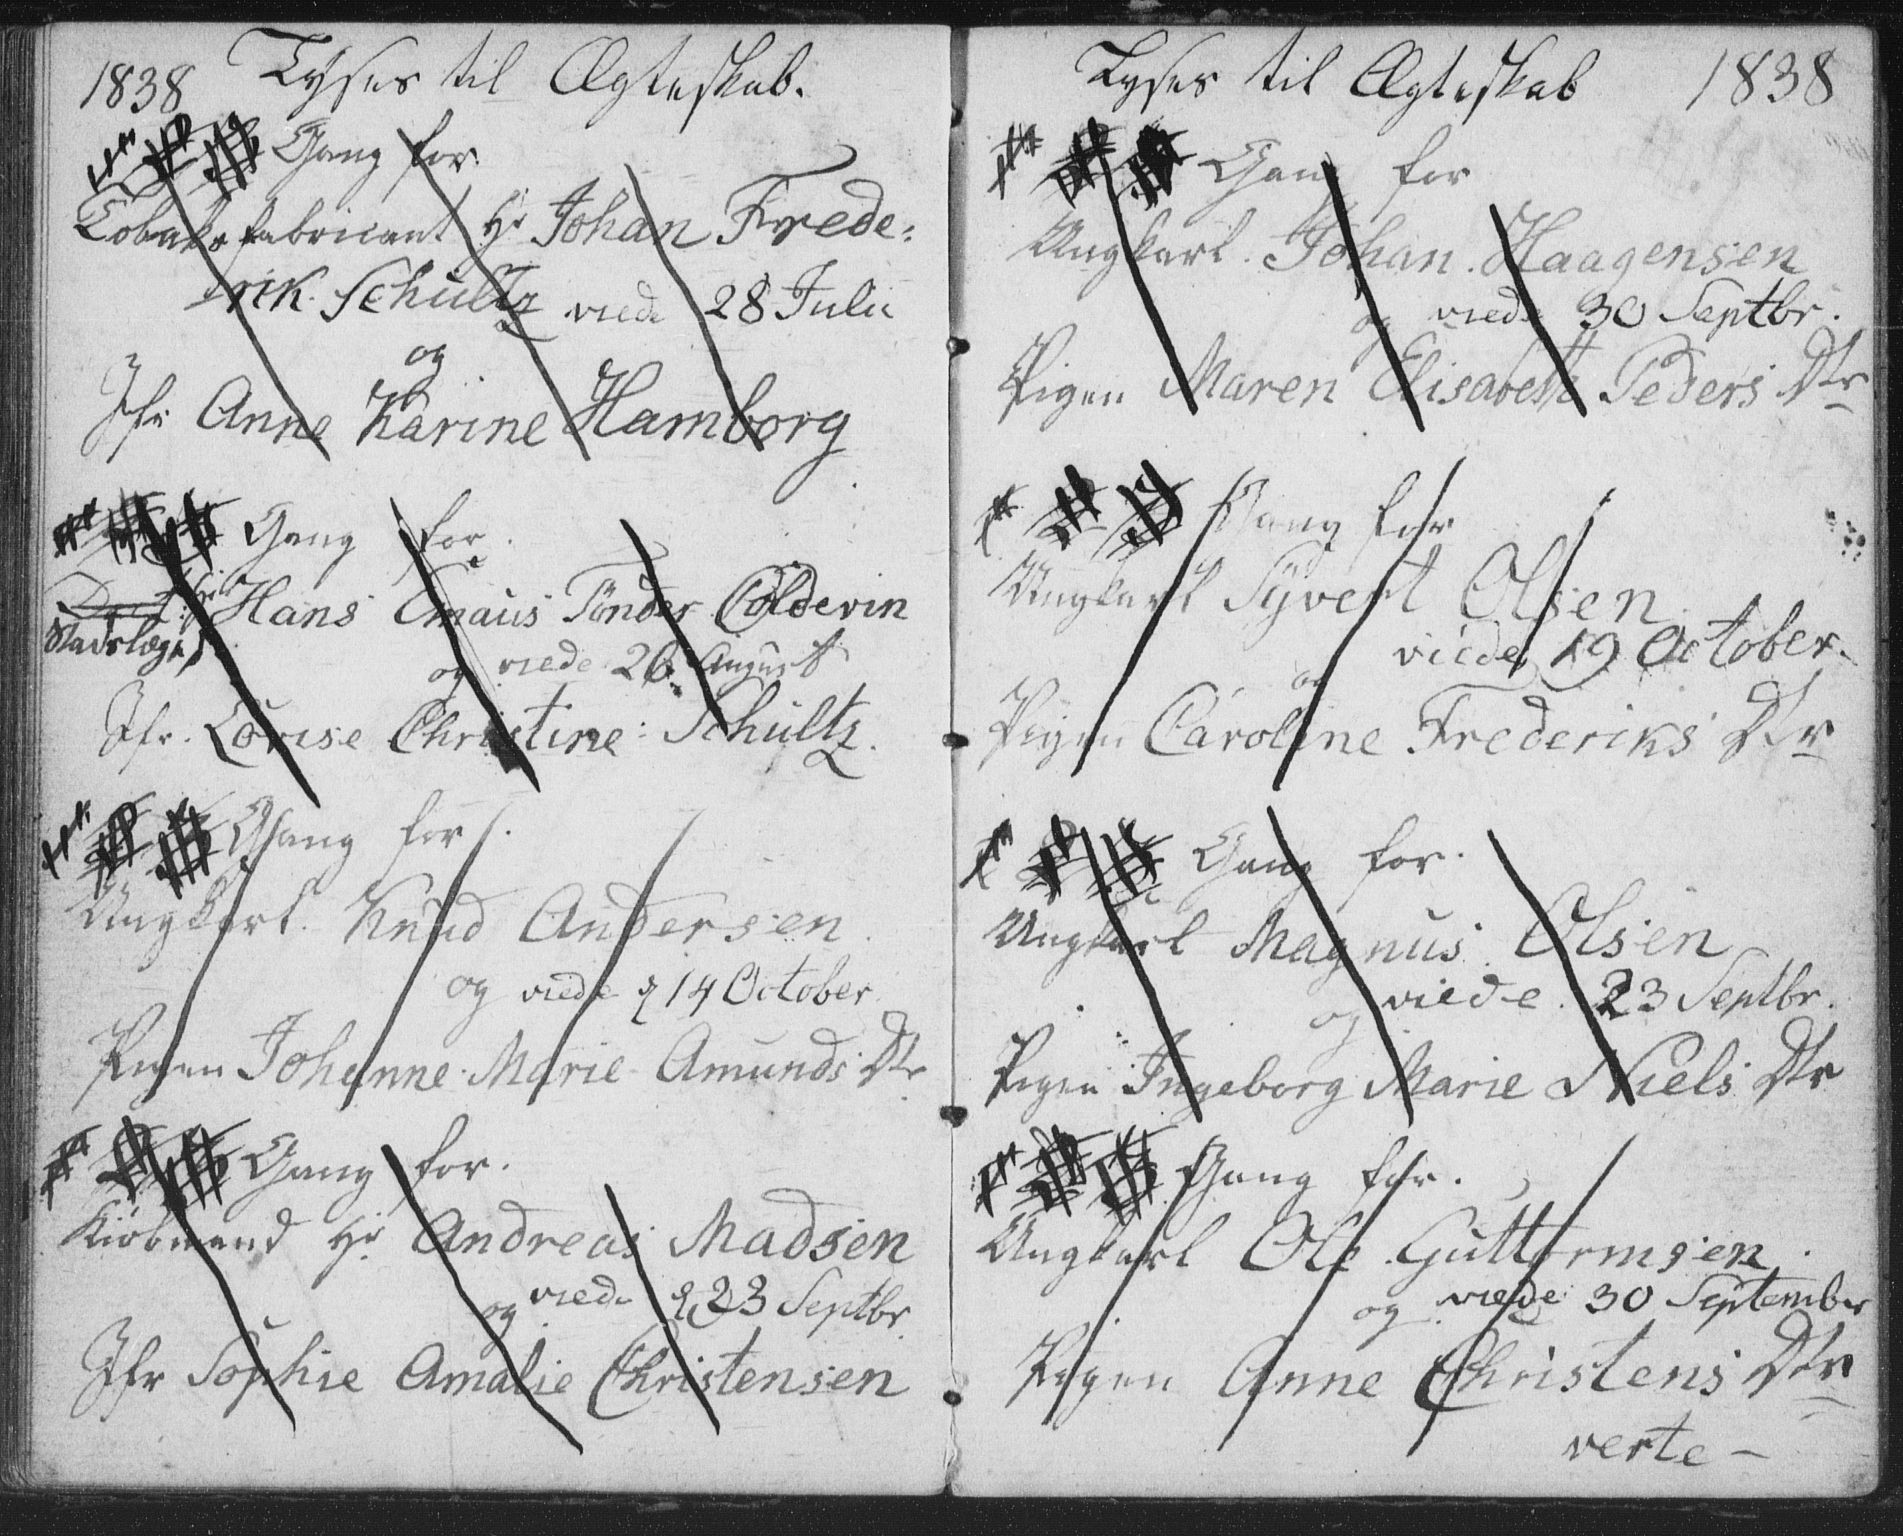 1838 Lyses til Ægteskab.
Gang for
Tobaks fabricant Hr Johan Frede-
rik Schultz viede 28 Julii
og
Jfr Anne Karine Hamborg
Gang for
Hr Hans Emaus Tønder Coldevin
Stadslæge
og viede 26 August
Jfr. Lovise Christine Schultz.
Gang for.
Ungkarl Knud Andersen
og viede d 14 October
Pigen Johanne Marie Amunds Dtr
Gang for.
Kiøbmand Hr Andreas Madsen
og viede d 23 Septbr.
Jfr Sophie Amalie Christensen
Lyses til Ægteskab 1838
Gang for
Ungkarl Johan Haagensen
og viede 30 Septbr.
Pigen Maren Elisabeth Peders Dtr
Gang for
Ungkarl Syvert Olsen
viede 19 October.
og
Pigen Caroline Frederiks Dtr
Gang for.
Ungkarl Magnus Olsen
og viede 23 Septbr.
Pigen Ingeborg Marie Niels Dtr
Gang for.
Ungkarl Ole Guttormsen
og viede 30 September
Pigen Anne Christens Dtr
verte –